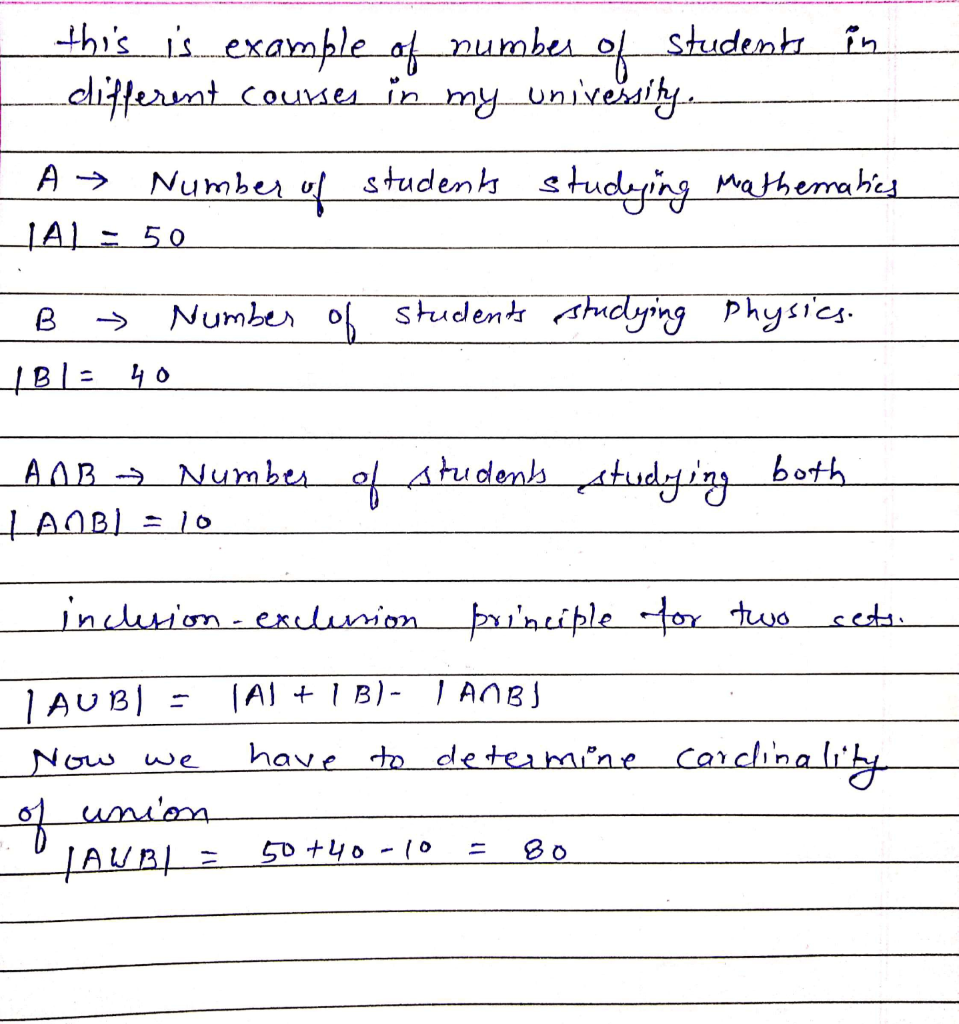 this is example of number of students in
different courses in my university.
A → Number of students studying Mathematics
|A| = 50
B → Number of students studying physics.
|B| = 40
A∩B → Number of students studying both
|A∩B| = 10
inclusion-exclusion principle for two sets.
|A∪B| = |A| + |B| - |A∩B|
Now we have to determine cardinality
of union
|A∪B| = 50+40-10 = 80